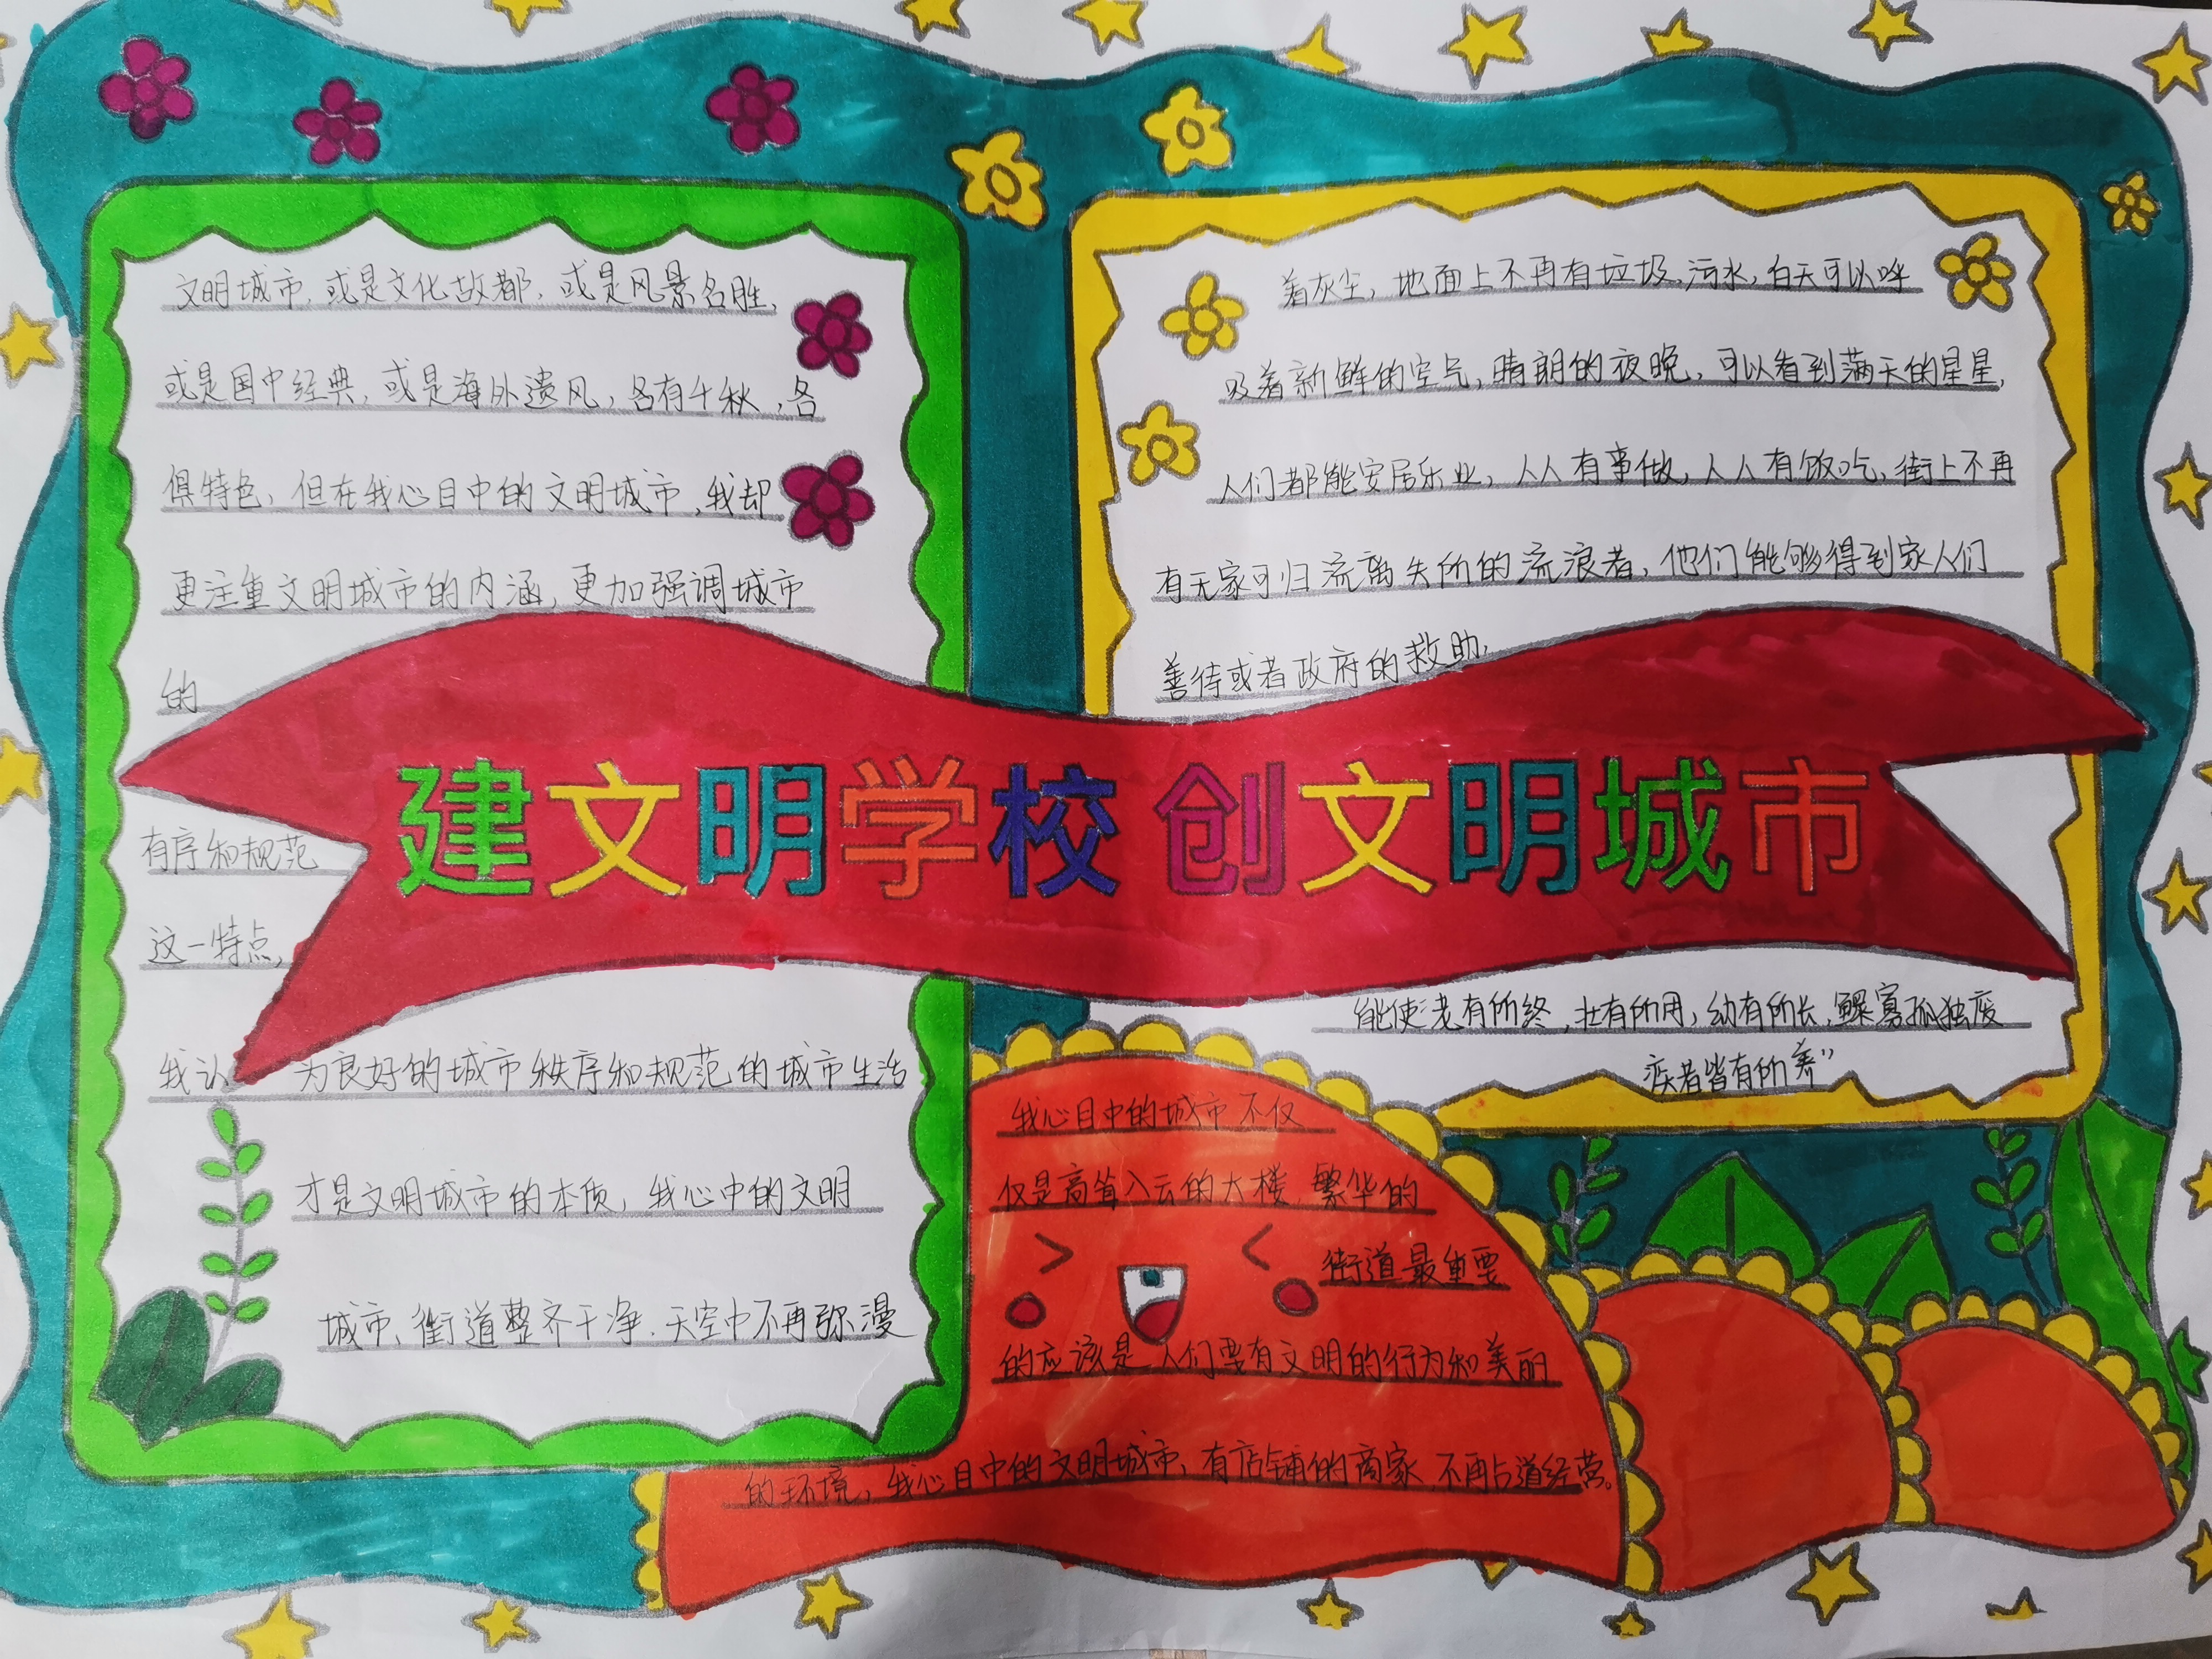 文明城市,或是文化故都,或是风景名胜,
或是国中经典,或是海外遗风,各有千秋,各
俱特色,但在我心目中的文明城市,我却
更注重文明城市的内涵,更加强调城市
的
有序和规范
这一特点,
我认为良好的城市秩序和规范的城市生活
才是文明城市的本质,我心中的文明
城市、街道整齐干净,天空中不再弥漫
建文明学校 创文明城市
着灰尘,地面上不再有垃圾、污水,白天可以呼
吸着新鲜的空气,晴朗的夜晚,可以看到满天的星星,
人们都能安居乐业,人人有事做,人人有饭吃,街上不再
有无家可归流离失所的流浪者,他们能够得到家人们
善待或者政府的救助,
能使老有所终,壮有所用,幼有所长,鳏寡孤独废
疾者皆有所养”
我心目中的城市不仅
仅是高耸入云的大楼,繁华的
街道最重要
的应该是人们要有文明的行为和美丽
的环境,我心目中的文明城市、有店铺的商家,不再占道经营。